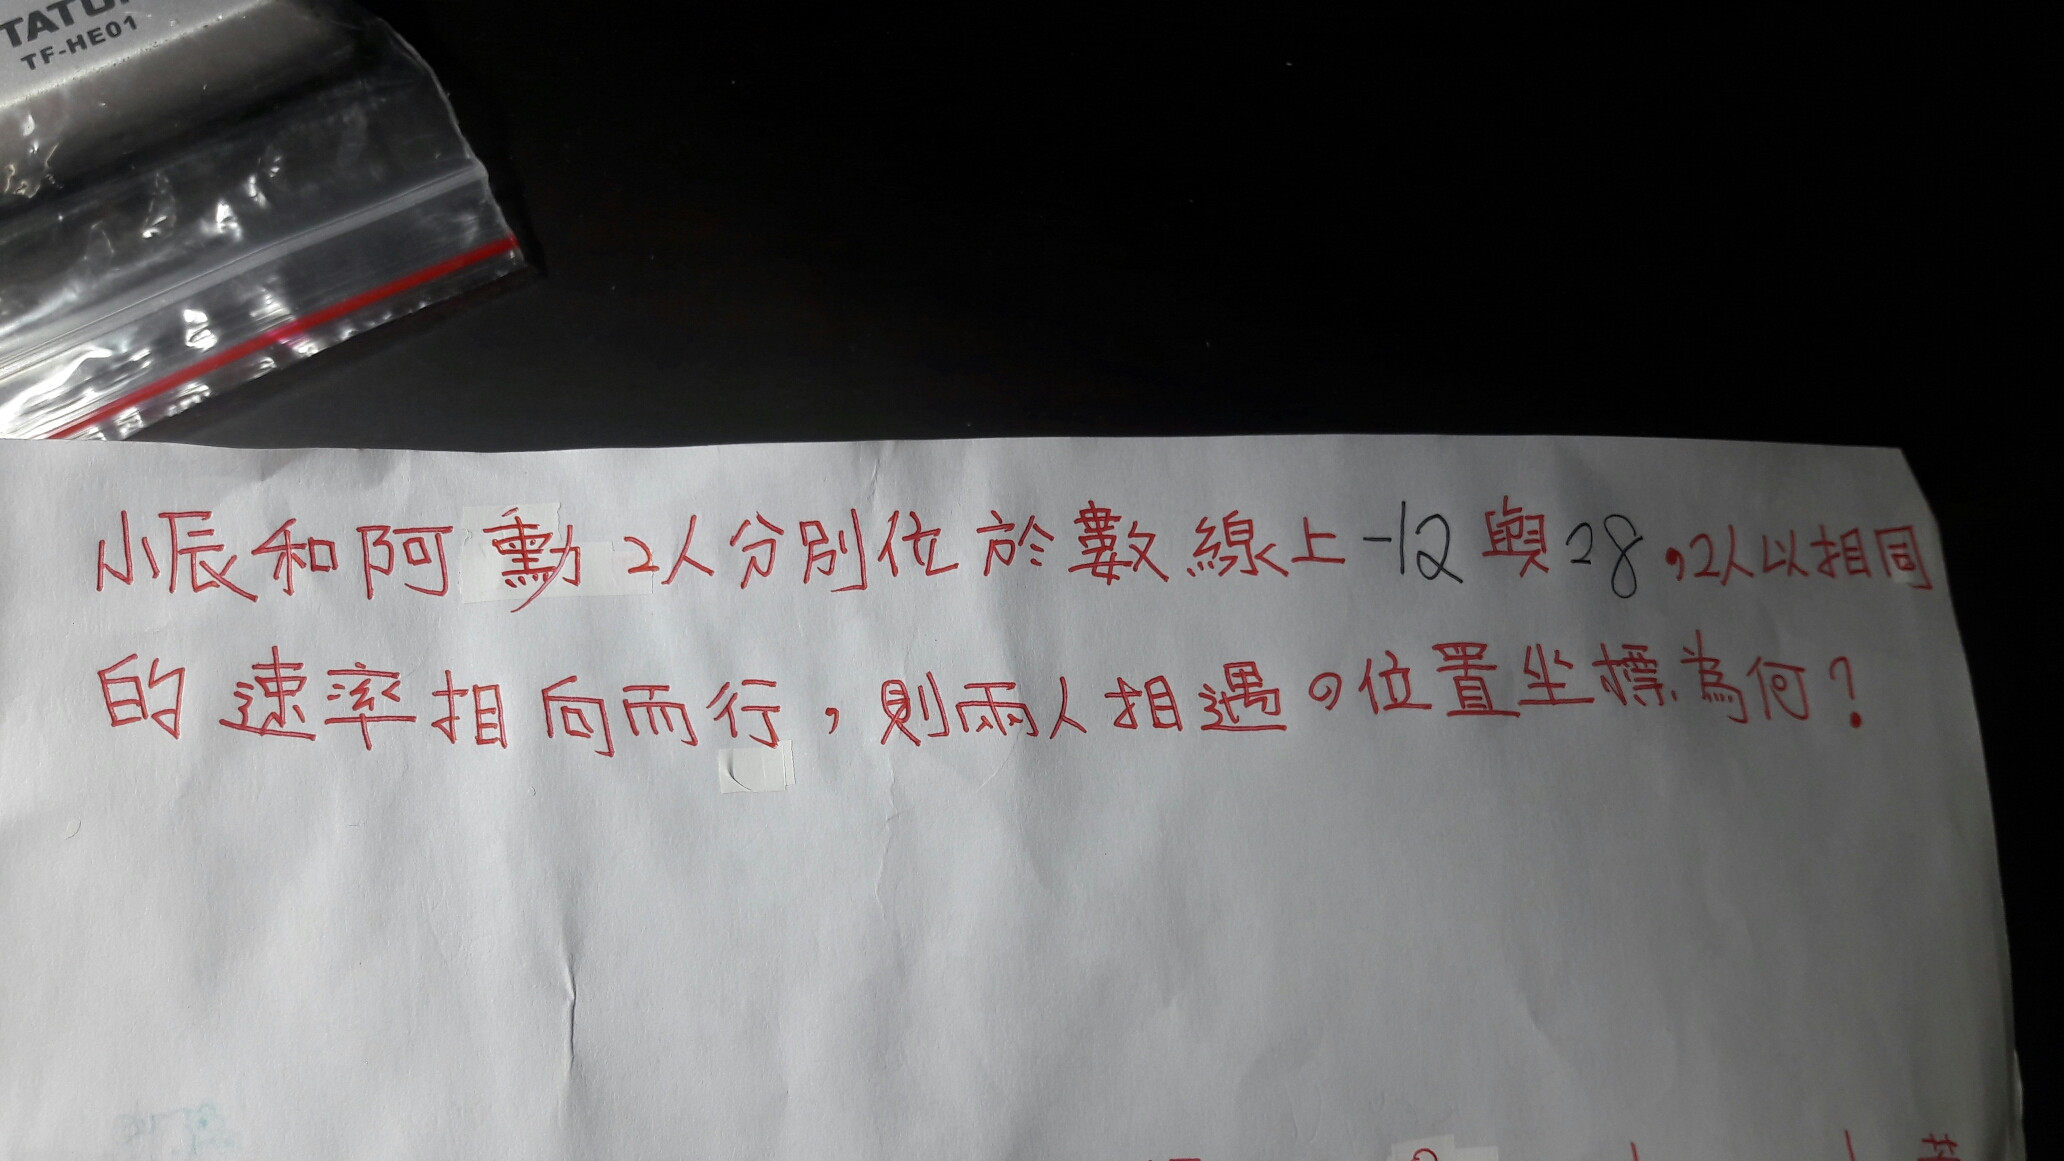 TF-HE01
小辰和阿勳2人分別位於數線上-12與28,2人以相同
的速率相向而行,則兩人相遇の位置坐標為何?